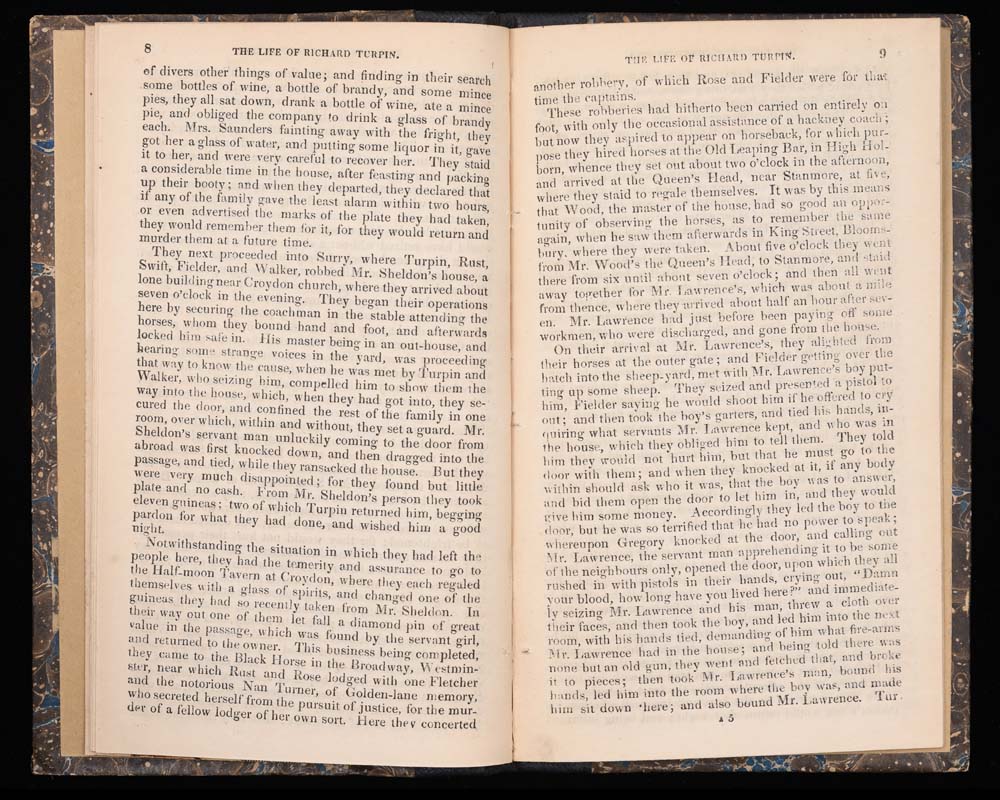 8 THE LIFE OF RICHARD TURPIN.
of divers other things of value; and finding in their search
some bottles of wine, a bottle of brandy, and some mince
pies, they all sat down, drank a bottle of wine, ate a mince
pie, and obliged the company to drink a glass of brandy
each. Mrs. Saunders fainting away with the fright, they
got her a glass of water, and putting some liquor in it, gave
it to her, and were very careful to recover her. They staid
a considerable time in the house, after feasting and packing
up their booty; and when they departed, they declared that
if any of the family gave the least alarm within two hours,
or even advertised the marks of the plate they had taken,
they would remember them for it, for they would return and
murder them at a future time.
They next proceeded into Surry, where Turpin, Rust,
Swift, Fielder, and Walker, robbed Mr. Sheldon's house, a
lone building near Croydon church, where they arrived about
seven o'clock in the evening. They began their operations
here by securing the coachman in the stable attending the
horses, whom they bound hand and foot, and afterwards
locked him safe in. His master being in an out-house, and
hearing some strange voices in the yard, was proceeding
that way to know the cause, when he was met by Turpin and
Walker, who seizing him, compelled him to show them the
way into the house, which, when they had got into, they se-
cured the door, and confined the rest of the family in one
room, over which, within and without, they set a guard. Mr.
Sheldon's servant man unluckily coming to the door from
abroad was first knocked down, and then dragged into the
passage, and tied, while they ransacked the house. But they
were very much disappointed; for they found but little
plate and no cash. From Mr. Sheldon's person they took
eleven guineas; two of which Turpin returned him, begging
pardon for what they had done, and wished him a good
night.
Notwithstanding the situation in which they had left the
people here, they had the temerity and assurance to go to
the Half-moon Tavern at Croydon, where they each regaled
themselves with a glass of spirits, and changed one of the
guineas they had so recently taken from Mr. Sheldon. In
their way out one of them let fall a diamond pin of great
value in the passage, which was found by the servant girl,
and returned to the owner. This business being completed,
they came to the Black Horse in the Broadway, Westmin-
ster, near which Rust and Rose lodged with one Fletcher
and the notorious Nan Turner, of Golden-lane memory,
who secreted herself from the pursuit of justice, for the mur-
der of a fellow lodger of her own sort. Here they concerted
THE LIFE OF RICHARD TURPIN. 9
another robbery, of which Rose and Fielder were for that
time the captains.
These robberies had hitherto been carried on entirely on
foot, with only the occasional assistance of a hackney coach;
but now they aspired to appear on horseback, for which pur-
pose they hired horses at the Old Leaping Bar, in High Hol-
born, whence they set out about two o'clock in the afternoon,
and arrived at the Queen's Head, near Stanmore, at five,
where they staid to regale themselves. It was by this means
that Wood, the master of the house, had so good an oppor-
tunity of observing the horses, as to remember the same
again, when he saw them afterwards in King Street, Blooms-
bury, where they were taken. About five o'clock they went
from Mr. Wood's the Queen's Head, to Stanmore, and staid
there from six until about seven o'clock; and then all went
away together for Mr. Lawrence's, which was about a mile
from thence, where they arrived about half an hour after sev-
en. Mr. Lawrence had just before been paying off some
workmen, who were discharged, and gone from the house.
On their arrival at Mr. Lawrence's, they alighted from
their horses at the outer gate; and Fielder getting over the
hatch into the sheep-yard, met with Mr. Lawrence's boy put-
ting up some sheep. They seized and presented a pistol to
him, Fielder saying he would shoot him if he offered to cry
out; and then took the boy's garters, and tied his hands, in-
quiring what servants Mr. Lawrence kept, and who was in
the house, which they obliged him to tell them. They told
him they would not hurt him, but that he must go to the
door with them; and when they knocked at it, if any body
within should ask who it was, that the boy was to answer,
and bid them open the door to let him in, and they would
give him some money. Accordingly they led the boy to the
door, but he was so terrified that he had no power to speak;
whereupon Gregory knocked at the door, and calling out
Mr. Lawrence, the servant man apprehending it to be some
of the neighbours only, opened the door, upon which they all
rushed in with pistols in their hands, crying out, "Damn
your blood, how long have you lived here?" and immediate-
ly seizing Mr. Lawrence and his man, threw a cloth over
their faces, and then took the boy, and led him into the next
room, with his hands tied, demanding of him what fire-arms
Mr. Lawrence had in the house; and being told there was
none but an old gun, they went and fetched that, and broke
it to pieces; then took Mr. Lawrence's man, bound his
hands, led him into the room where the boy was, and made
him sit down there; and also bound Mr. Lawrence. Tur-
A 5